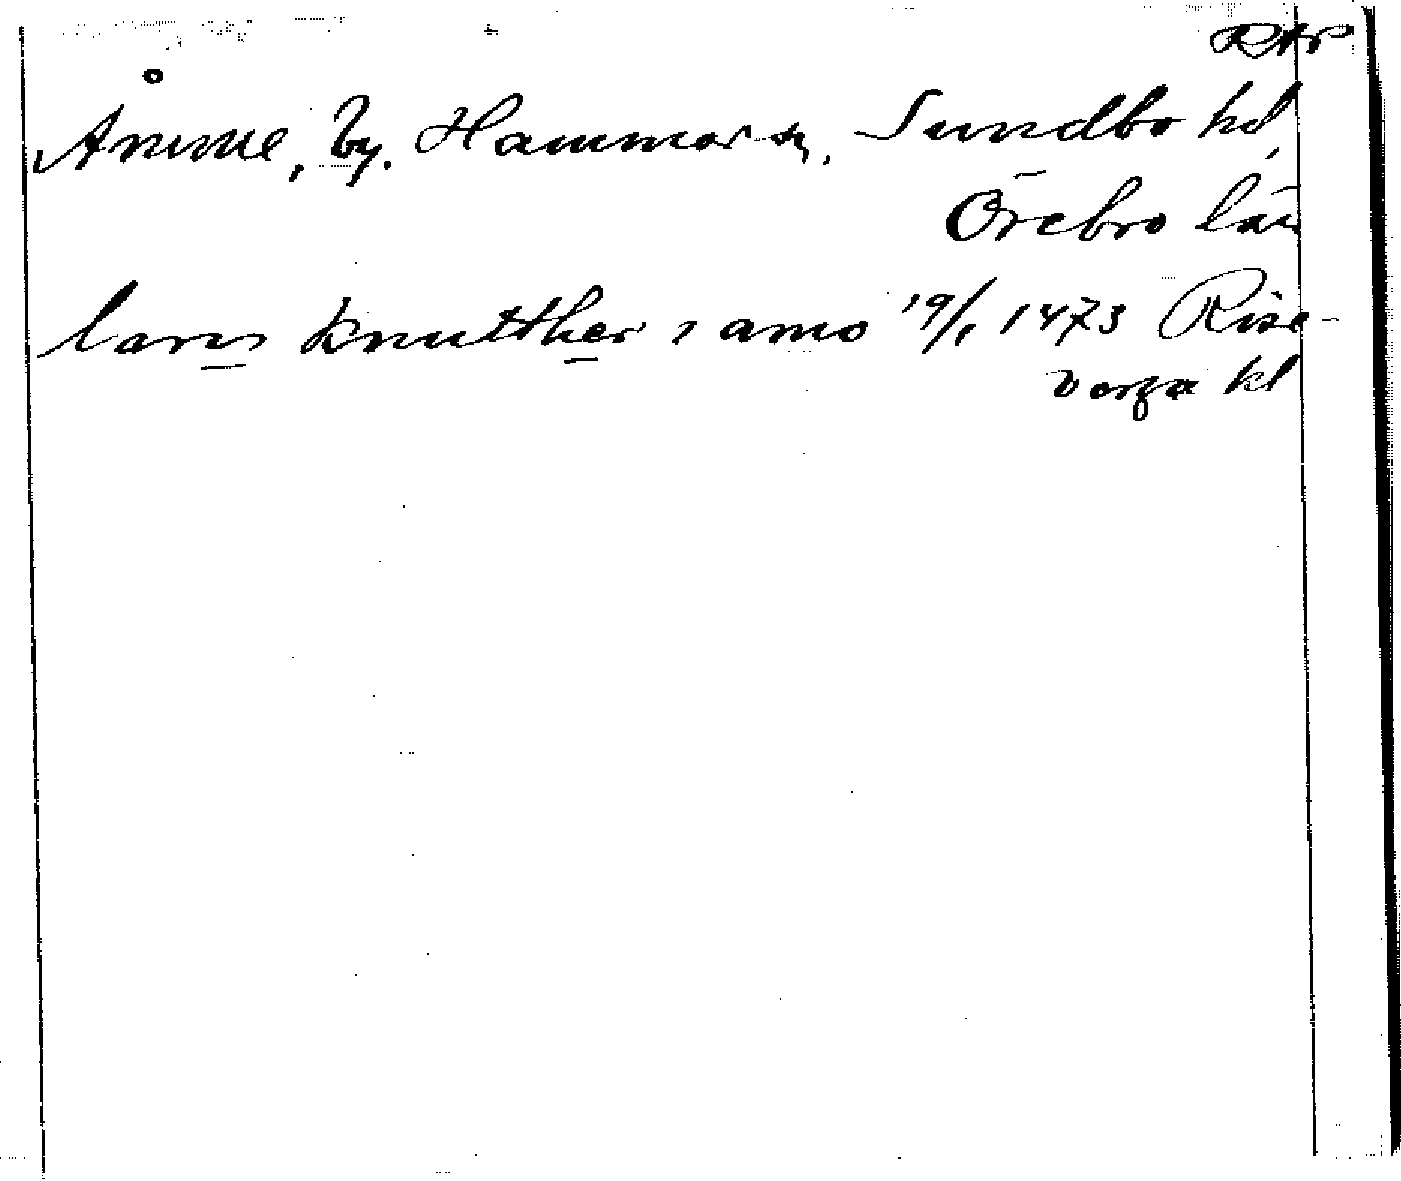 RAP
Åmme, by. Hammar sn, Sundbo hd,
Örebro län
larss knutther i amo 19/1 1473 Rise-
berga kl